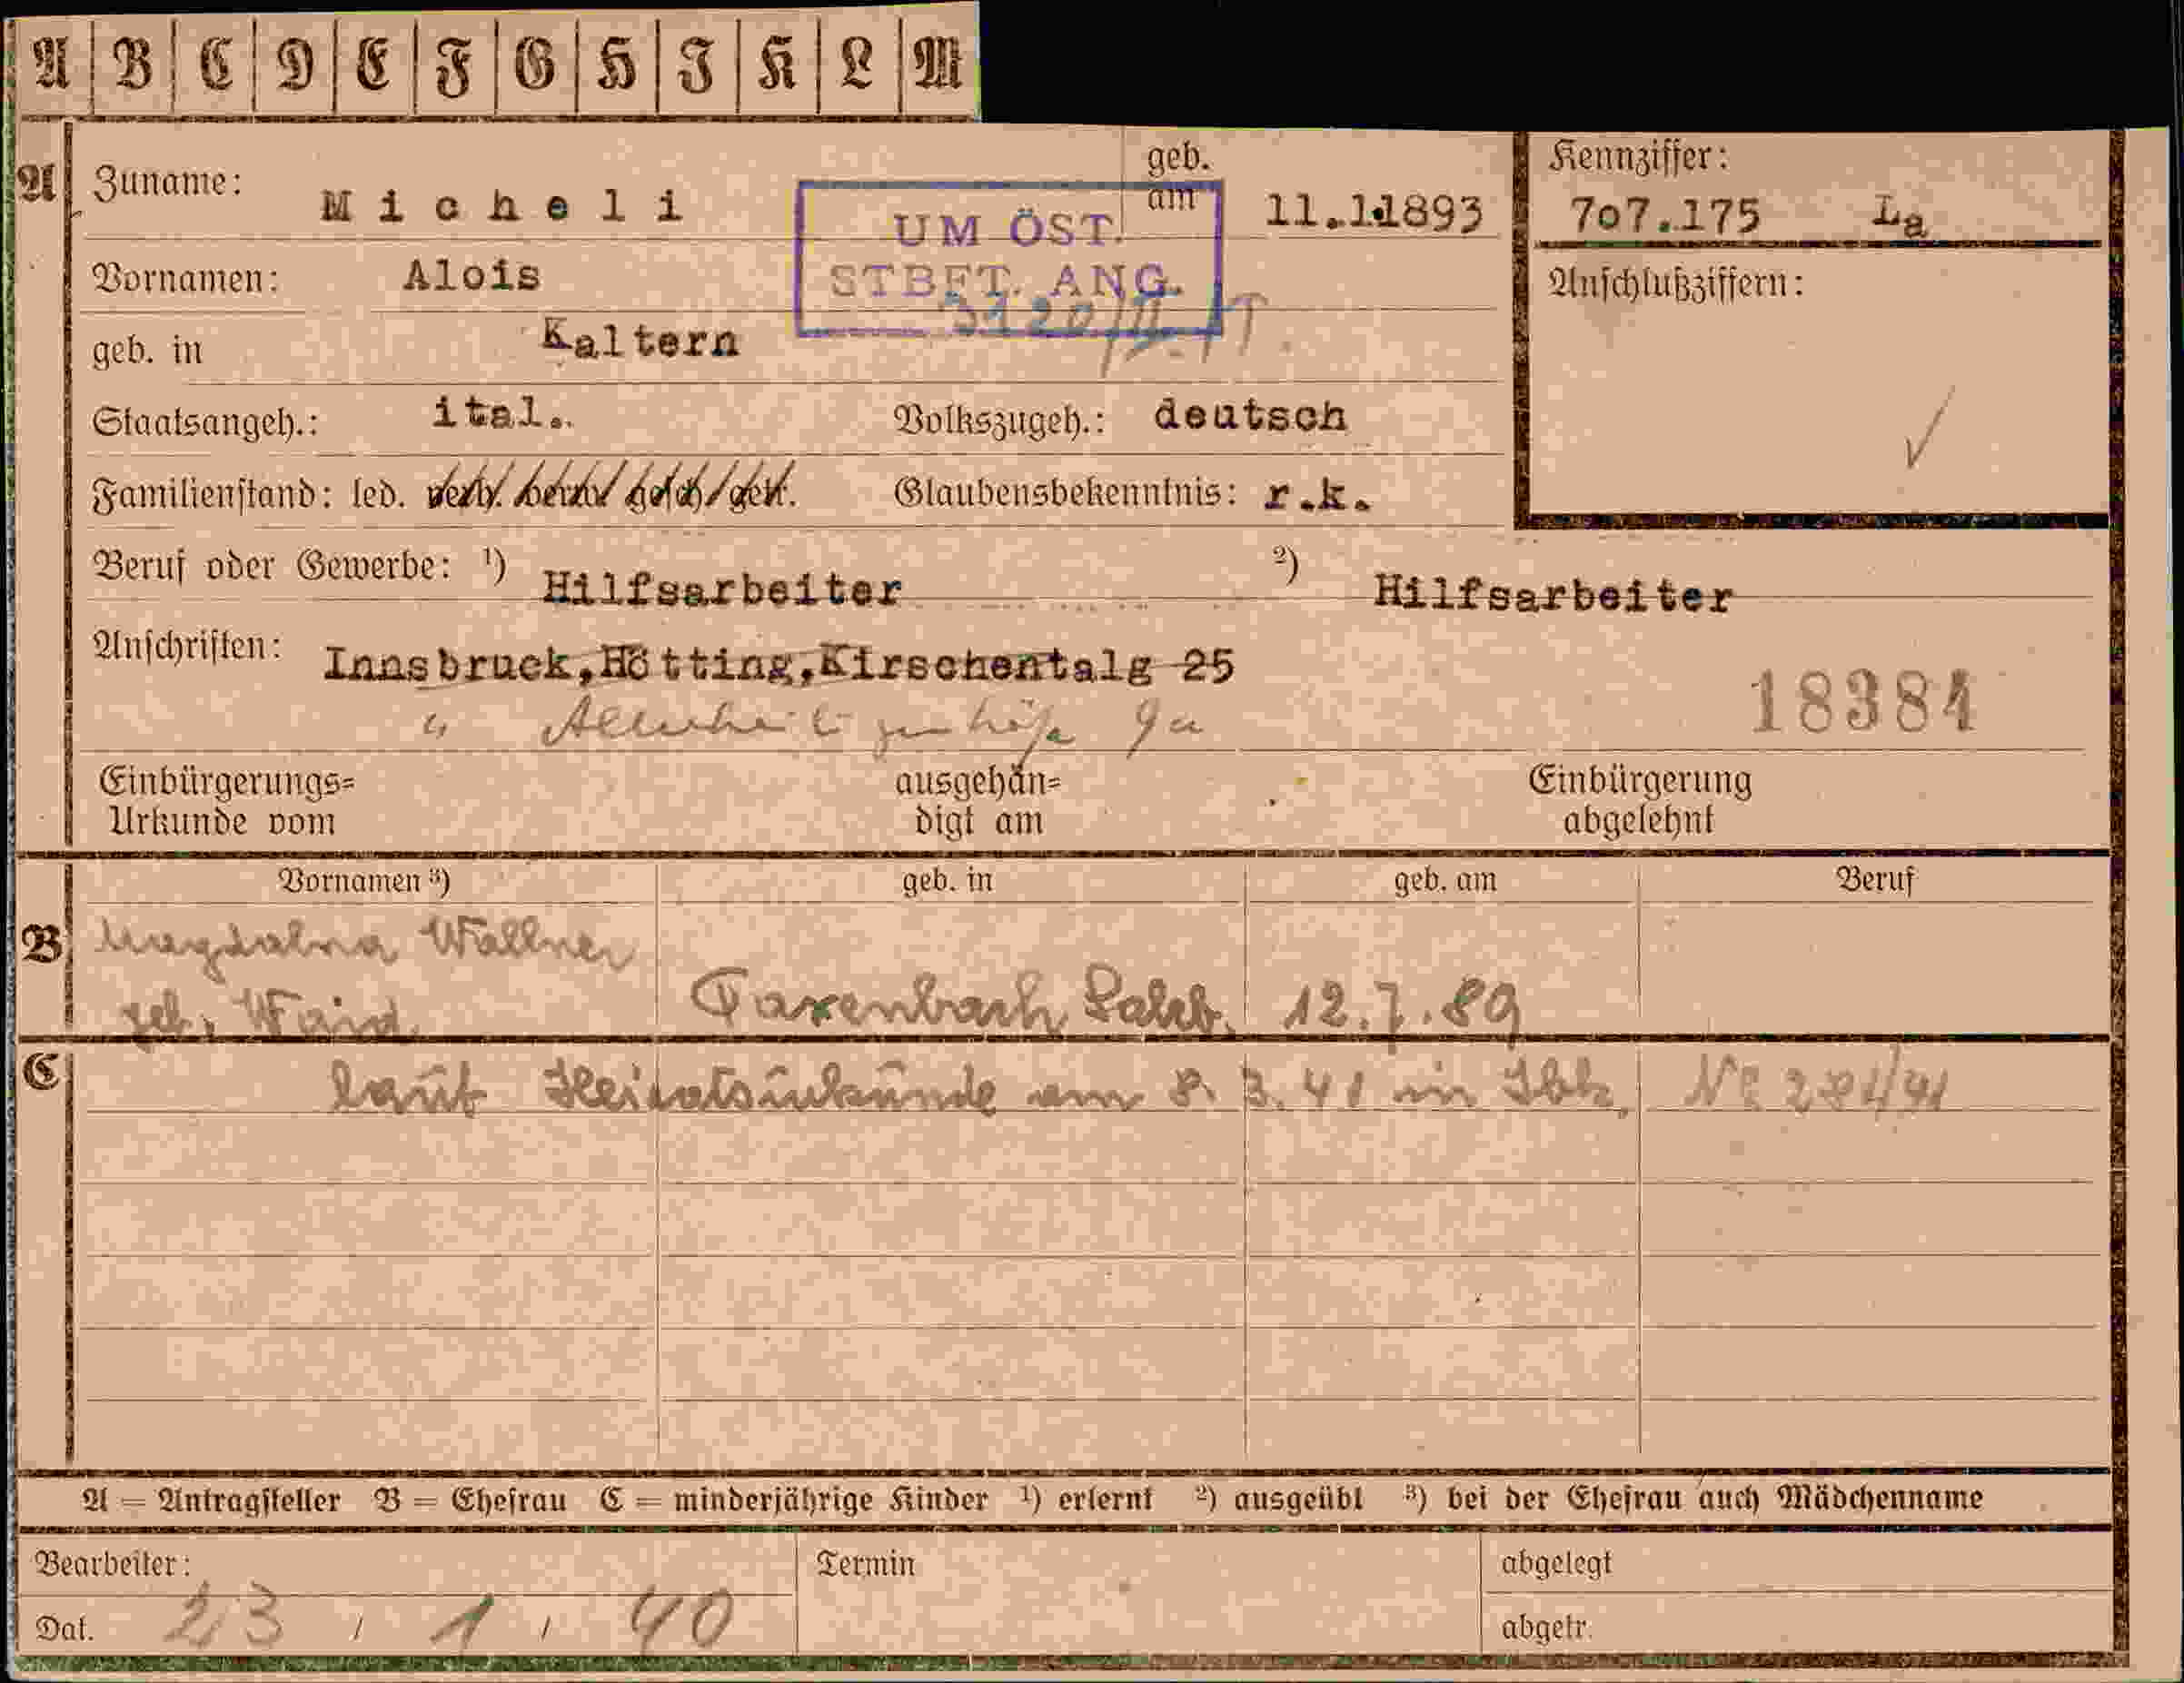 A B C D E F G H J K L M
A Zuname: Micheli geb. am 11.1.1893 Kennziffer:
707.175 La
UM ÖST.
STBFT. ANG.
3120/II/T.
Vornamen: Alois Anschlußziffern:
geb. in Kaltern
Staatsangeh.: ital. Volkszugeh.: deutsch
Familienstand: led. verh. verw. gesch. getr. Glaubensbekenntnis: r.k.
Beruf oder Gewerbe: 1) Hilfsarbeiter 2) Hilfsarbeiter
Anschriften: Innsbruck,Hötting,Kirschentalg 25
" 9a
18384
Einbürgerungs= ausgehän= Einbürgerung
Urkunde vom digt am abgelehnt
Vornamen 3) geb. in geb. am Beruf
B Magdalena Wallner
geb. Waid Taxenbach Salzb. 12.7.89
C laut Heiratsurkunde am 8. 3. 41 in Ibk. No 281/41
A = Antragsteller B = Ehefrau C = minderjährige Kinder 1) erlernt 2) ausgeübt 3) bei der Ehefrau auch Mädchenname
Bearbeiter: Termin abgelegt
Dat. 23 / 1 / 40 abgetr.